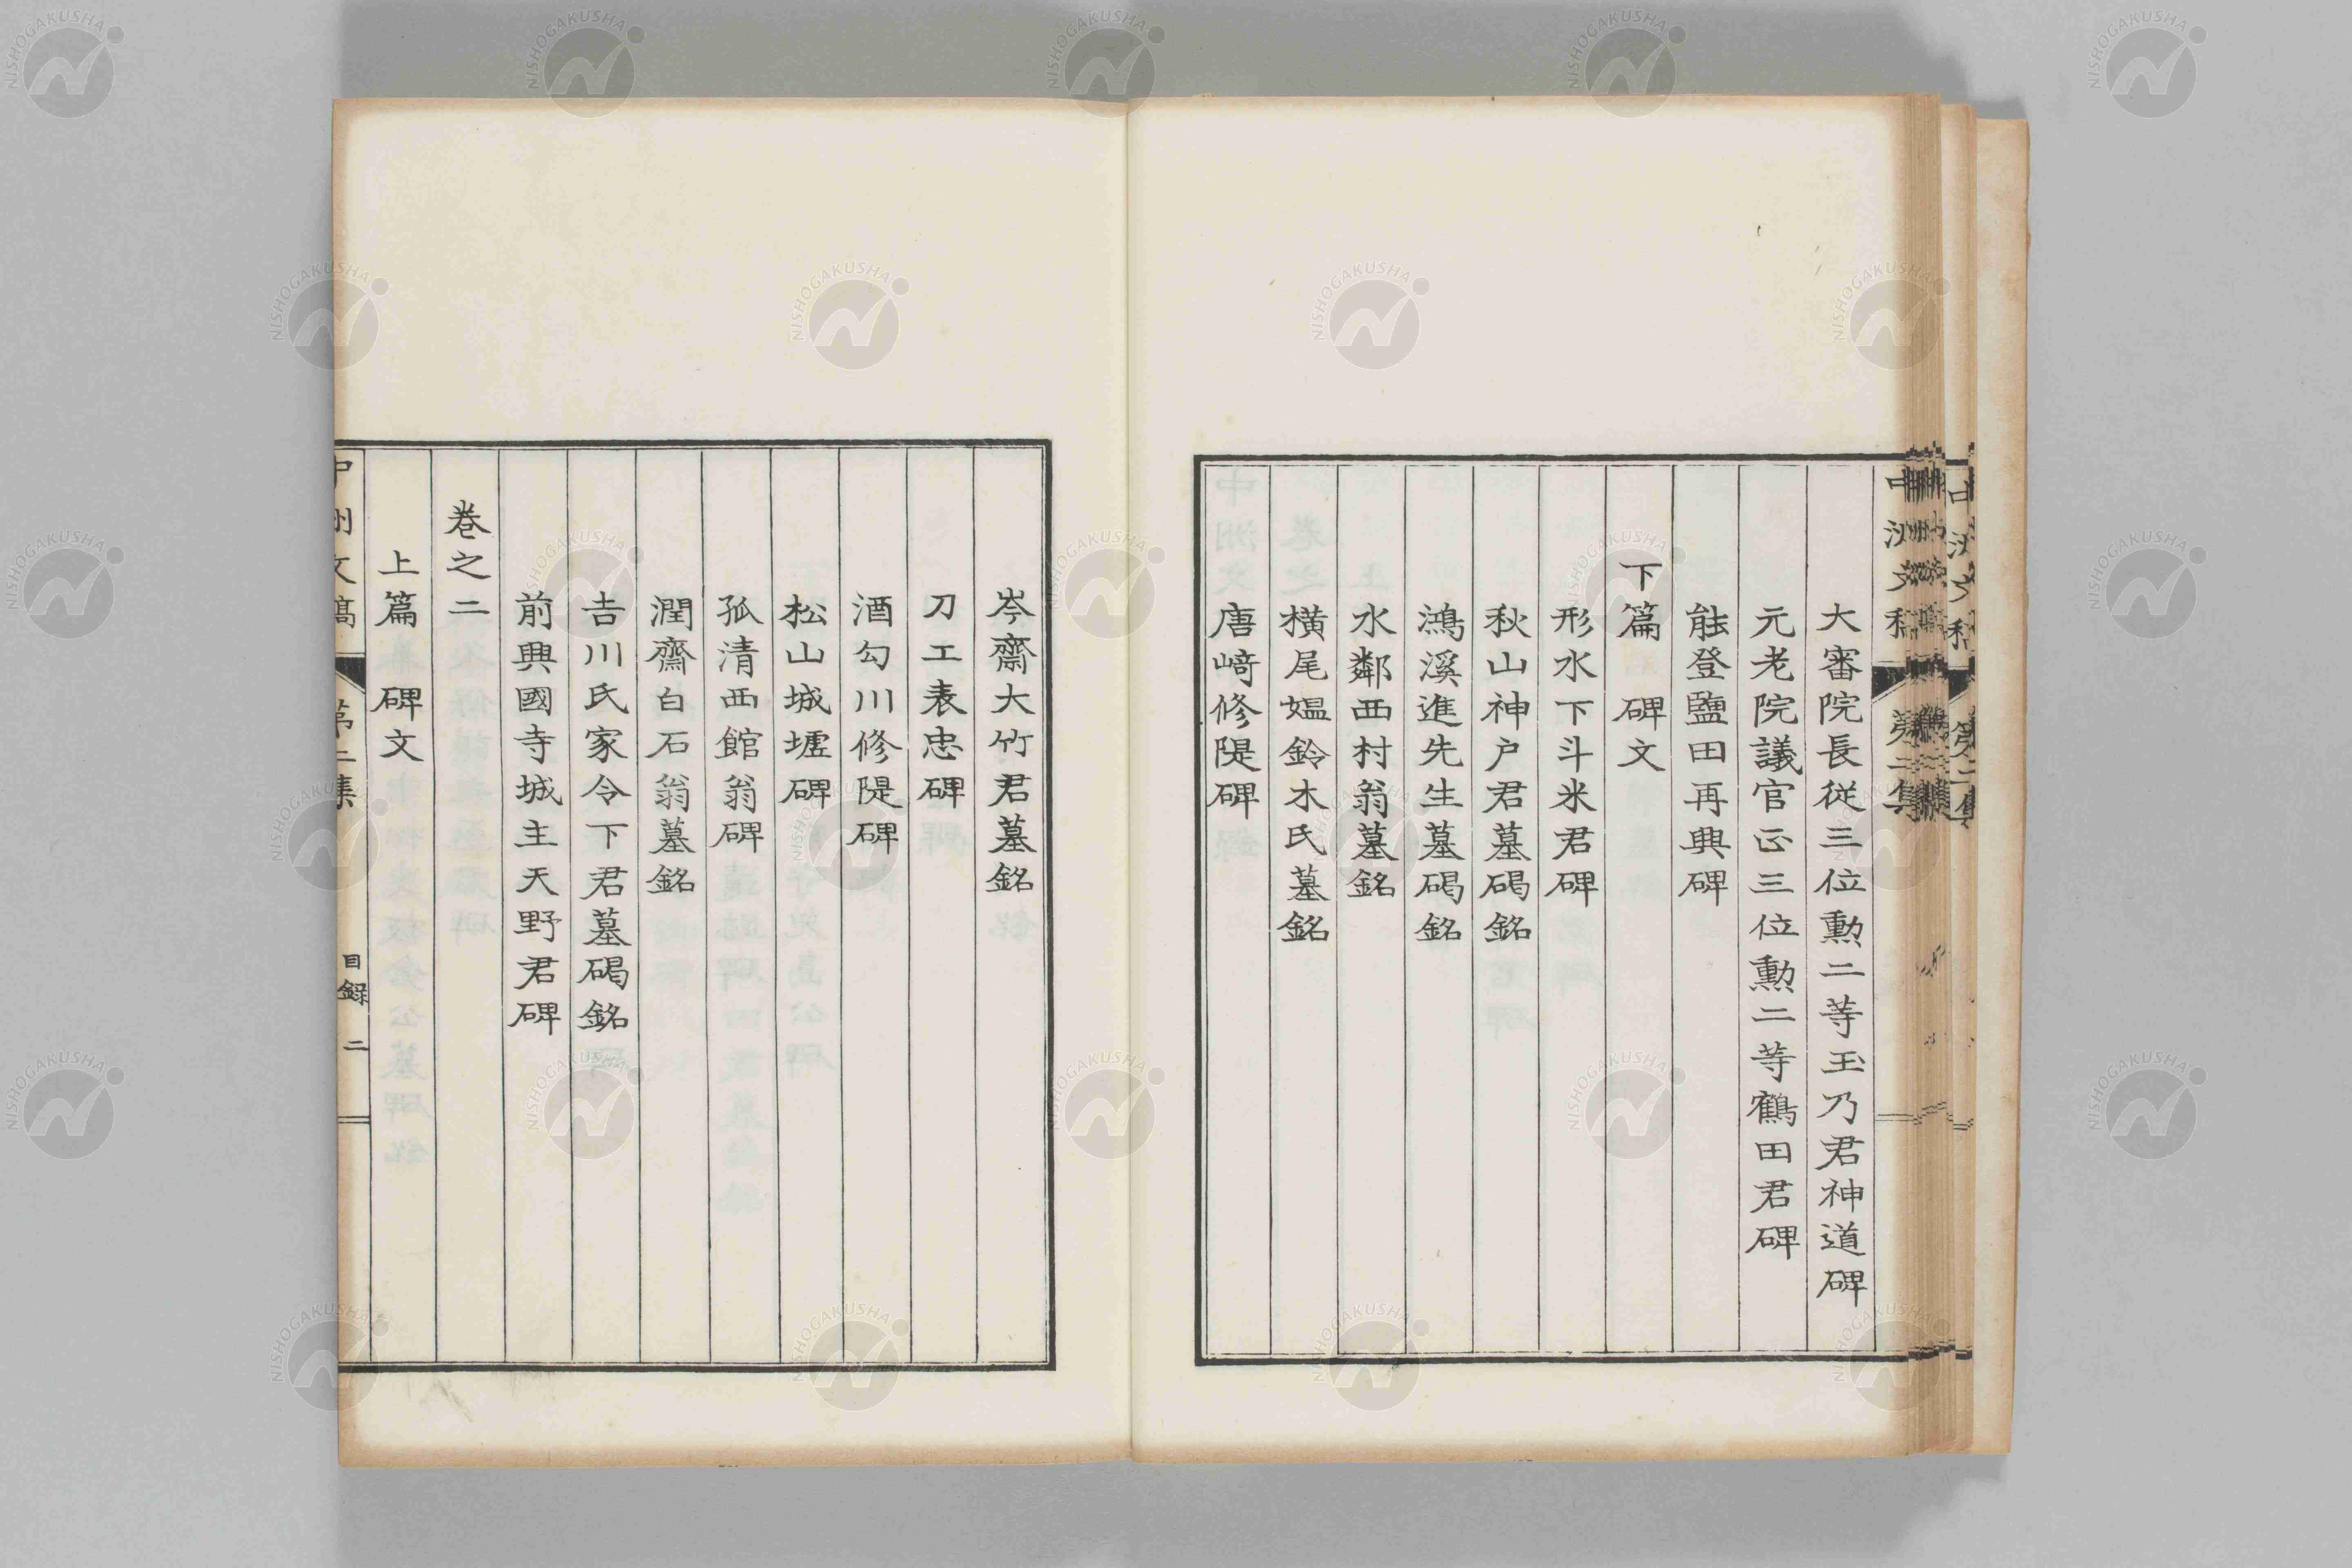 大審院長從三位勳二等玉乃君神道碑
元老院議官正三位勳二等鶴田君碑
能登鹽田再興碑
下篇 碑文
形水下斗米君碑
秋山神戸君墓碣銘
鴻溪進先生墓碣銘
水鄰西村翁墓銘
橫尾媼鈴木氏墓銘
唐﨑修隄碑
岑齋大竹君墓銘
刀工表忠碑
酒勾川修隄碑
松山城墟碑
孤清西館翁碑
潤齋白石翁墓銘
吉川氏家令下君墓碣銘
前興國寺城主天野君碑
卷之二
上篇 碑文
中洲文稿 第二集 目錄 二
NISHOGAKUSHA